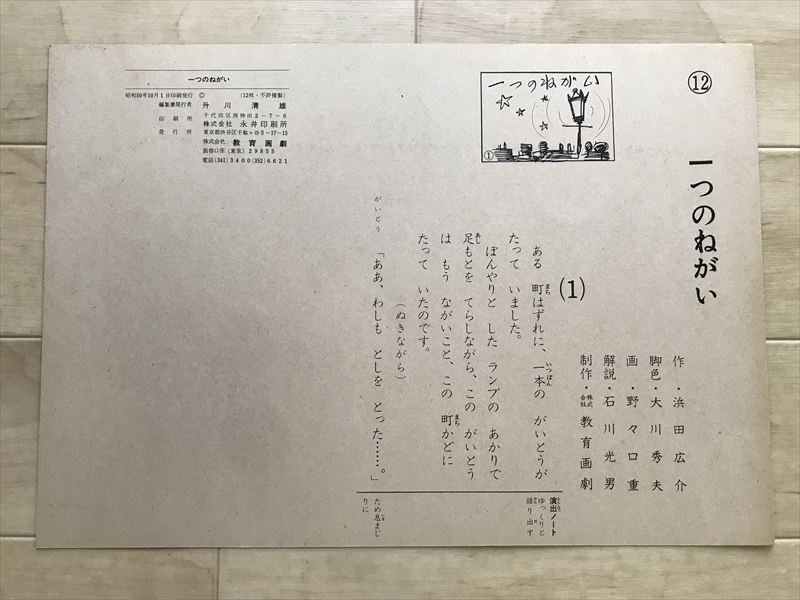 ⑫
一つのねがい
①
一つのねがい
作・浜田広介
脚色・大川秀夫
画・野々口重
解説・石川光男
制作・株式会社教育画劇
(1)
ある 町はずれに、一本の がいとうが
たって いました。
ぼんやりと した ランプの あかりで
足もとを てらしながら、この がいとう
は もう ながいこと、この 町かどに
たって いたのです。
(ぬきながら)
がいとう
「ああ、わしも としを とった……。」
演出ノート
ゆっくりと
語り出す
ため息まじ
りに
一つのねがい
昭和50年10月1日印刷発行 © (12枚・不許複製)
編集兼発行者 升川清雄
千代田区西神田2-7-6
印刷所 株式会社 永井印刷所
発行所 東京都渋谷区千駄ヶ谷5-17-15
株式会社 教育画劇
振替口座(東京)29855
電話(341)3400(352)6621